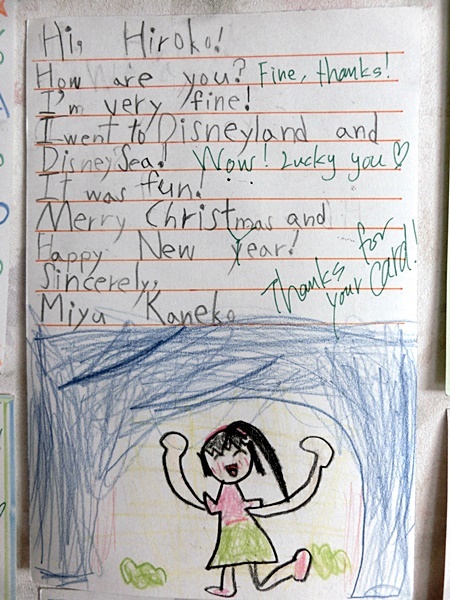 Hi, Hiroko!
How are you? Fine, thanks!
I'm very fine!
I went to Disneyland and
DisneySea! Wow! Lucky you♡
It was fun!
Merry Christmas and
Happy New Year!
Sincerely,
Miyu Kaneko
Thanks for
your card!